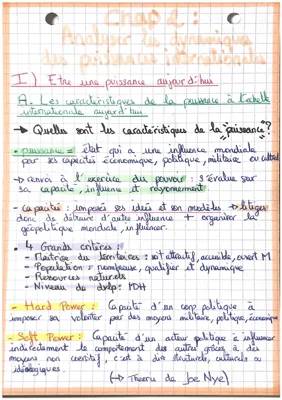 Chap 1 :
Analyser les dynamiques
des puissances internationales
I) Etre une puissance aujourd'hui
A. Les caractéristiques de la puissance à l'échelle
internationale aujourd'hui
→ Quelles sont les caractéristiques de la "puissance"?
• puissance = état qui a une influence mondiale
par ses capacités économique, politique, militaire ou culturel
→ renvoi à l'exercice du pouvoir : s'évalue sur
sa capacité, influence et rayonnement
- capacités : imposer ses idées et son modèles → litiges
donc de détruire d'autre influence + organiser la
géopolitique mondiale, influencer.
• 4 Grands critères :
- Maîtrise du territoires : soit attractif, accessible, ouvert M
- Population = nombreuse, qualifier et dynamique
- Ressources naturels
- Niveau de dvlp : IDH
- Hard Power : Capacité d'un corp politique à
imposer sa volonter par des moyens militaire, politique, économique
- Soft Power : Capacité d'un acteur politique à influencer
indirectement le comportement des autres grâce à des
moyens non coercitif, c'est à dire structurels, culturels ou
idéologiques.
(→ Théorie de Joe Nye)